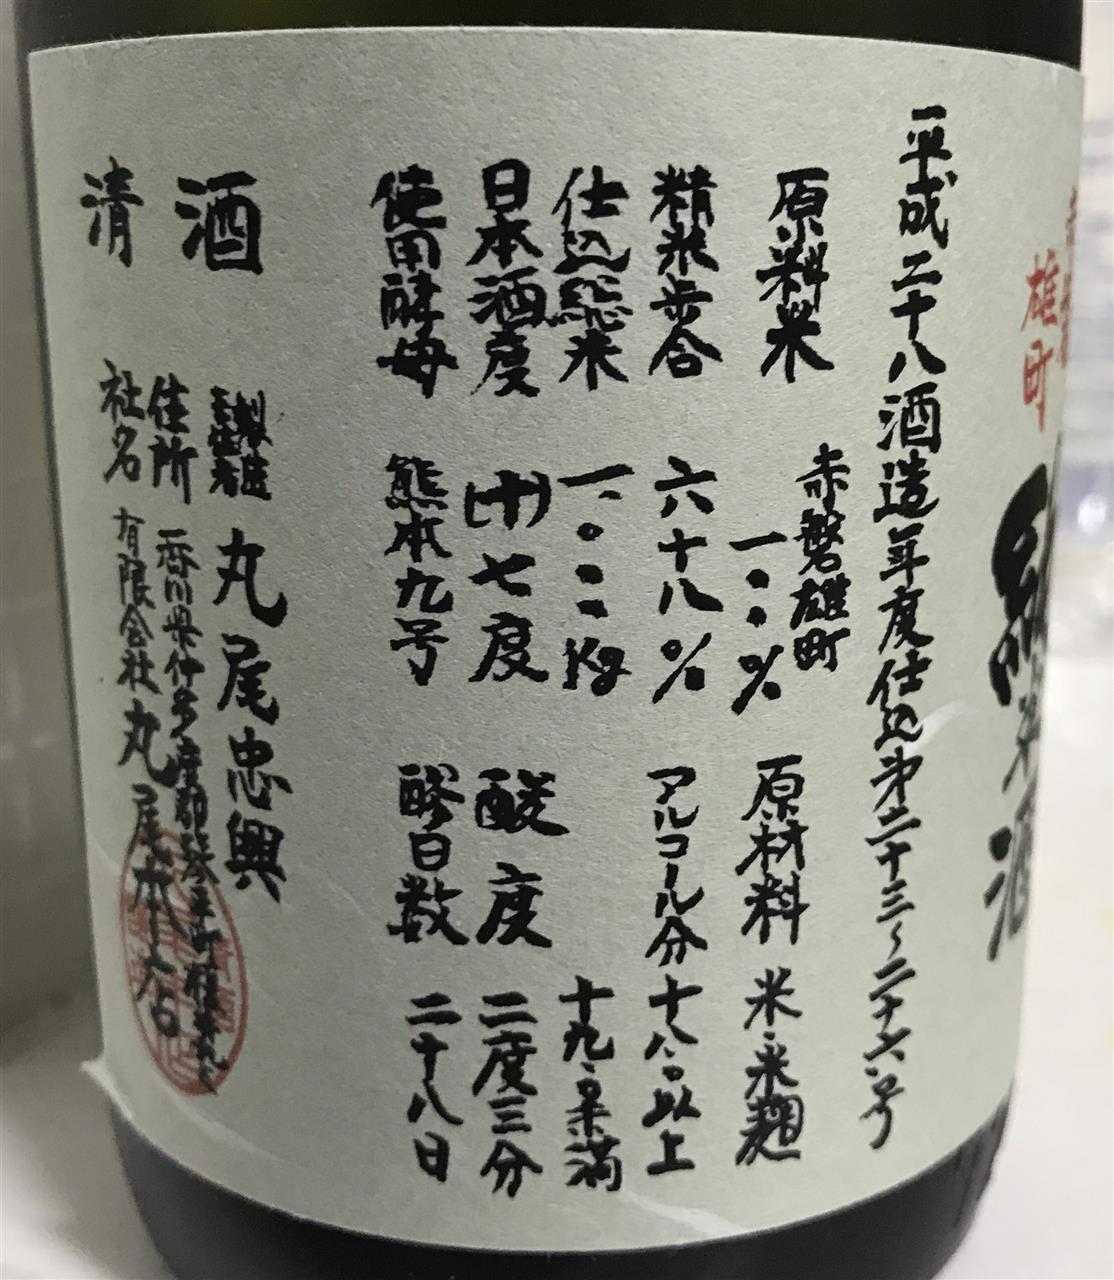 雄町
純米酒
平成二十八酒造年度仕込第二十三〜二十六号
原料米 赤磐雄町
一〇〇%
原材料 米・米麹
精米歩合 六十八%
アルコール分 十八・〇以上
十九・〇未満
仕込総米 一、〇二二Kg
日本酒度 (十)七度
酸度 二度三分
使用酵母 熊本九号
醪日数 二十八日
清酒
製造
丸尾忠興
住所 香川県仲多度郡琴平町榎井
社名 有限会社丸尾本店